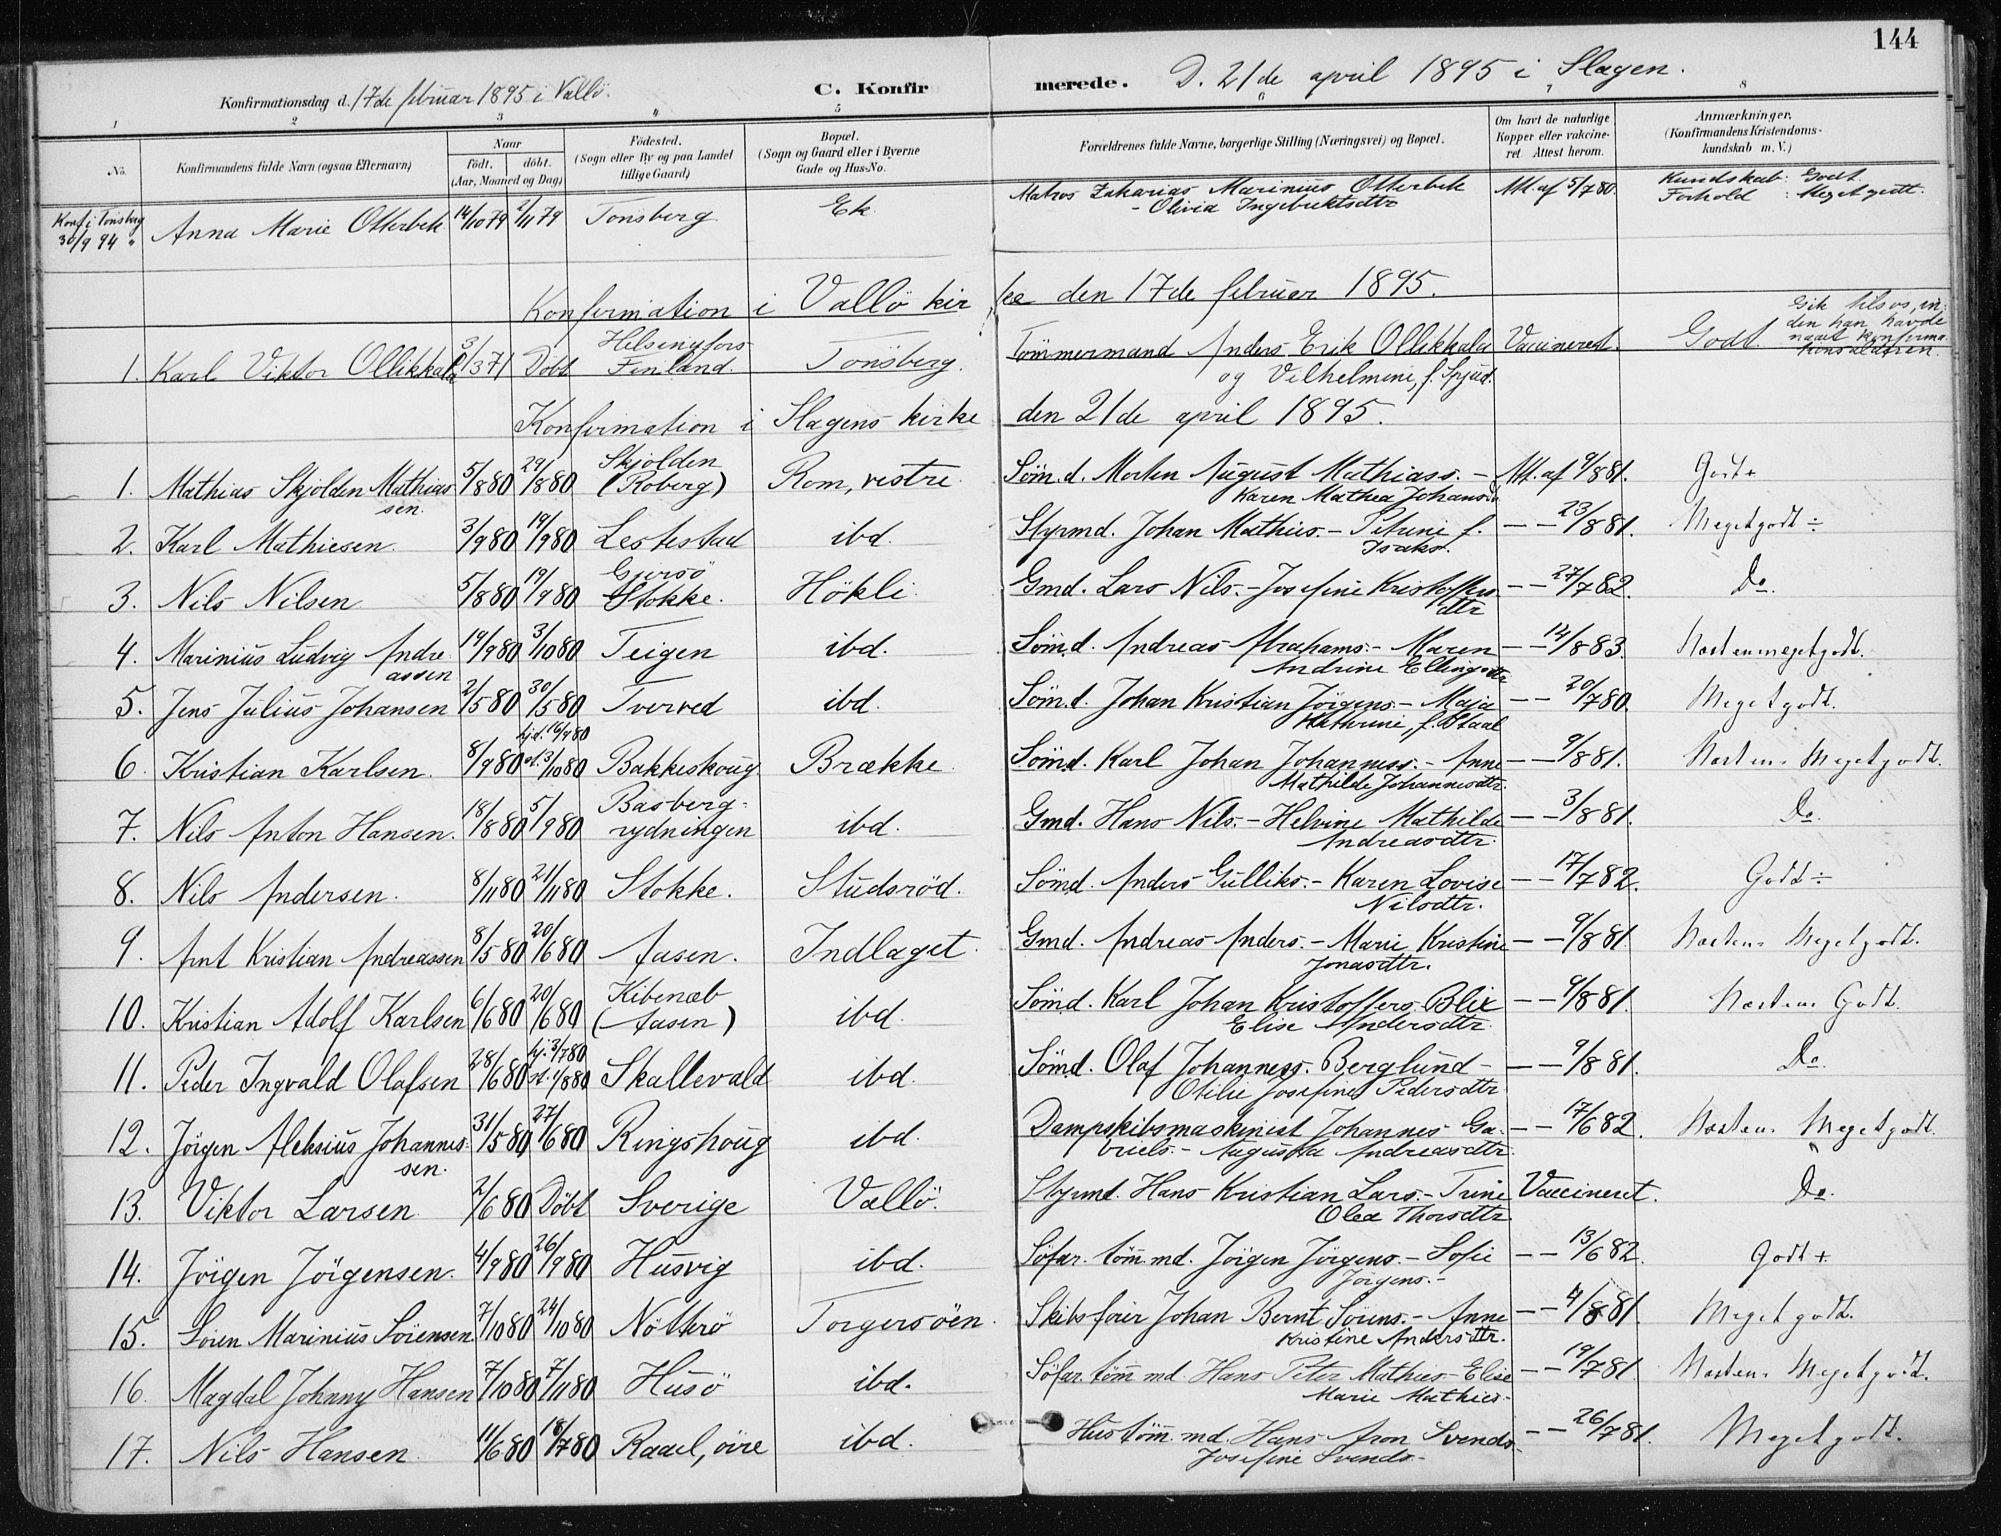 144
Konfirmationsdag d. 17de februar 1895 i Vallö. C. Konfirmerede. D. 21de april 1895 i Slagen.
1 2 3 4 5 6 7 8
No. Konfirmandens fulde Navn (ogsaa Efternavn) Naar födt. döbt. (Aar, Maaned og Dag) Födested. (Sogn eller By og paa Landet tillige Gaard) Bopæl. (Sogn og Gaard eller i Byerne Gade og Hus-No. Forældrenes fulde Navne, borgerlige Stilling (Næringsvei) og Bopæl. Om havt de naturlige Kopper eller vakcineret. Attest herom. Anmærkninger, (Konfirmandens Kristendomskundskab m. V.)
Konf. i Tonsberg 30/9 94 " Anna Marie Otterbek 14/10 79 2/11 79 Tonsberg Ek Matros Zakarias Marinius Otterbek
- Olivia Ingebrektsdtr Att. af 5/7 80. Kundskab: Godt
Forhold: Meget godt.
Konfirmation i Vallö kirke den 17de februar 1895.
1. Karl Viktor Ollikkala 3/1 371 Döbt Helsingfors Finland. Tonsberg. Tömmermand Anders Erik Ollikkala
og Vilhelmine, f. Spjud. Vaccineret. Godt. Gik tilsös, inden han havde naaet konfirmationsalderen.
Konfirmation i Slagens kirke den 21de april 1895.
1. Mathias Skjolden Mathiassen. 5/8 80 29/8 80 Skjolden (Roberg) Rom, vestre Söm.d. Morten August Mathiass. -
Karen Mathea Johansd. Att. af 9/8 81. Godt +
2. Karl Mathiesen. 3/9 80 19/9 80 Lestestad ibd. Styrmd. Johan Mathies. - Petrine f.
Isaks. - - 23/8 81. Megetgodt ÷
3. Nils Nilsen 5/8 80 19/9 80 Gjersö Stokke. Hökli. Gmd. Lars Nils. - Josefine Kristoffersdtr - - 27/7 82. Do.
4. Marinius Ludvig Andreassen 19/9 80 3/10 80 Teigen ibd. Sömd. Andreas Abrahams. - Maren
Andrine Ellingsdtr - - 14/8 83. Næstenmegetgodt.
5. Jens Julius Johansen 2/5 80 30/5 80 Tverved ibd. Sömd. Johan Kristian Jörgens. - Maja
Kathrine, f. Staal - - 20/7 80. Megetgodt.
6. Kristian Karlsen. 8/9 80 hjd. 10/9 80 st. 3/10 80 Bakkeskoug Brække. Sömd. Karl Johan Johanness. - Anne
Mathilde Johannesdtr. - - 9/8 81. Næsten Megetgodt.
7. Nils Anton Hansen. 18/8 80 5/9 80 Basbergrydningen ibd. Gmd. Hans Nils. - Helvine Mathilde
Andreasdtr. - - 3/8 81. Do.
8. Nils Andersen. 8/11 80 21/11 80 Stokke. Studsröd. Sömd. Anders Gulliks. - Karen Lovise
Nilsdtr. - - 17/7 82. Godt ÷
9. Arnt Kristian Andreassen 8/5 80 20/6 80 Aasen. Indlaget. Gmd. Andreas Anders. - Marie Kristine
Jonasdtr. - - 9/8 81. Næsten Megetgodt.
10. Kristian Adolf Karlsen 6/6 80 20/6 80 Kibenæb (Aasen) ibd. Sömd. Karl Johan Kristoffers. Blix
Elise Andersdtr. - - 9/8 81. Næsten Godt.
11. Peder Ingvald Olafsen 28/6 80 hj. 3/7 80 st. 1/8 80 Skallevald ibd. Sömd. Olaf Johanness. Berglund -
Otilie Josefine Pedersdtr - - 9/8 81. Do.
12. Jörgen Aleksius Johannessen. 31/5 80 27/6 80 Ringshoug ibd. Dampskibsmaskinist Johannes Gabriels. - Augusta Andreasdtr. - - 17/6 82. Næsten Megetgodt.
13. Viktor Larsen 2/6 80 Döbt Sverige Vallö. Styrmd. Hans Kristian Lars. - Trine
Olea Thorsdtr. Vaccineret. Do.
14. Jörgen Jörgensen. 4/9 80 26/9 80 Husvig ibd. Söfar. töm. md. Jörgen Jörgens. - Sofie
Jörgens. - - - 13/6 82. Godt +
15. Sören Marinius Sörensen 7/10 80 24/10 80 Nötterö Torgersöen. Skibsförer Johan Bernt Sörens. - Anne
Kristine Andersdtr. - - 4/8 81. Megetgodt.
16. Magdal Johnny Hansen 7/10 80 7/11 80 Husö ibd. Söfar. töm md. Hans Peter Mathies - Elise
Marie Mathies - - - 19/7 81. Næsten Megetgodt.
17. Nils Hansen. 11/6 80 18/7 80 Raael, övre ibd. Hustöm. md. Hans Aron Svends.
Josefine Svends - - - 26/7 81. Megetgodt.